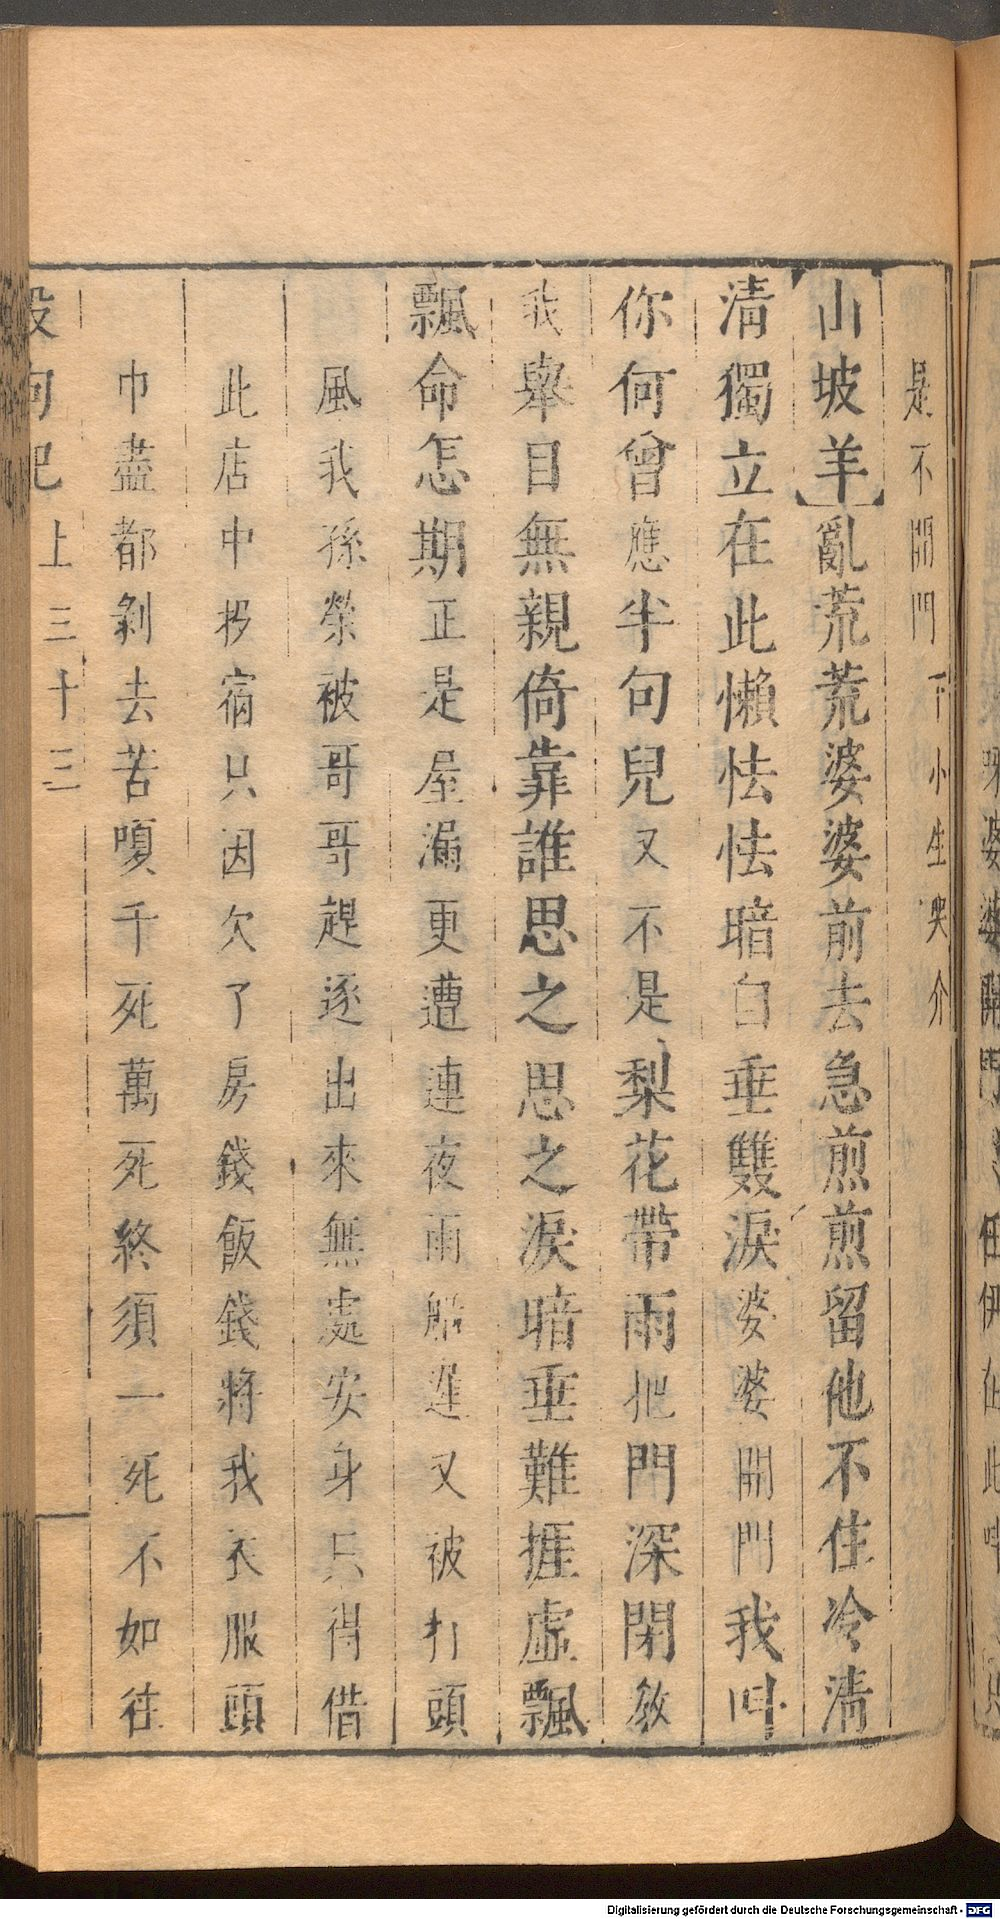 是不開門下小生哭介
山坡羊亂荒荒婆婆前去急煎煎留他不住冷清
清獨立在此懶怯怯暗自垂雙淚婆婆開門我叫
你何曾應半句兒又不是梨花帶雨把門深閉敎
我舉目無親倚靠誰思之思之淚暗垂難捱虛飄
飄命怎期正是屋漏更遭連夜雨船遲又被打頭
風我孫榮被哥哥趕逐出來無處安身只得借
此店中投宿只因欠了房錢飯錢將我衣服頭
巾盡都剝去苦嗄千死萬死終須一死不如往
殺狗記上三十三
呀婆婆開門
Digitalisierung gefördert durch die Deutsche Forschungsgemeinschaft - DFG